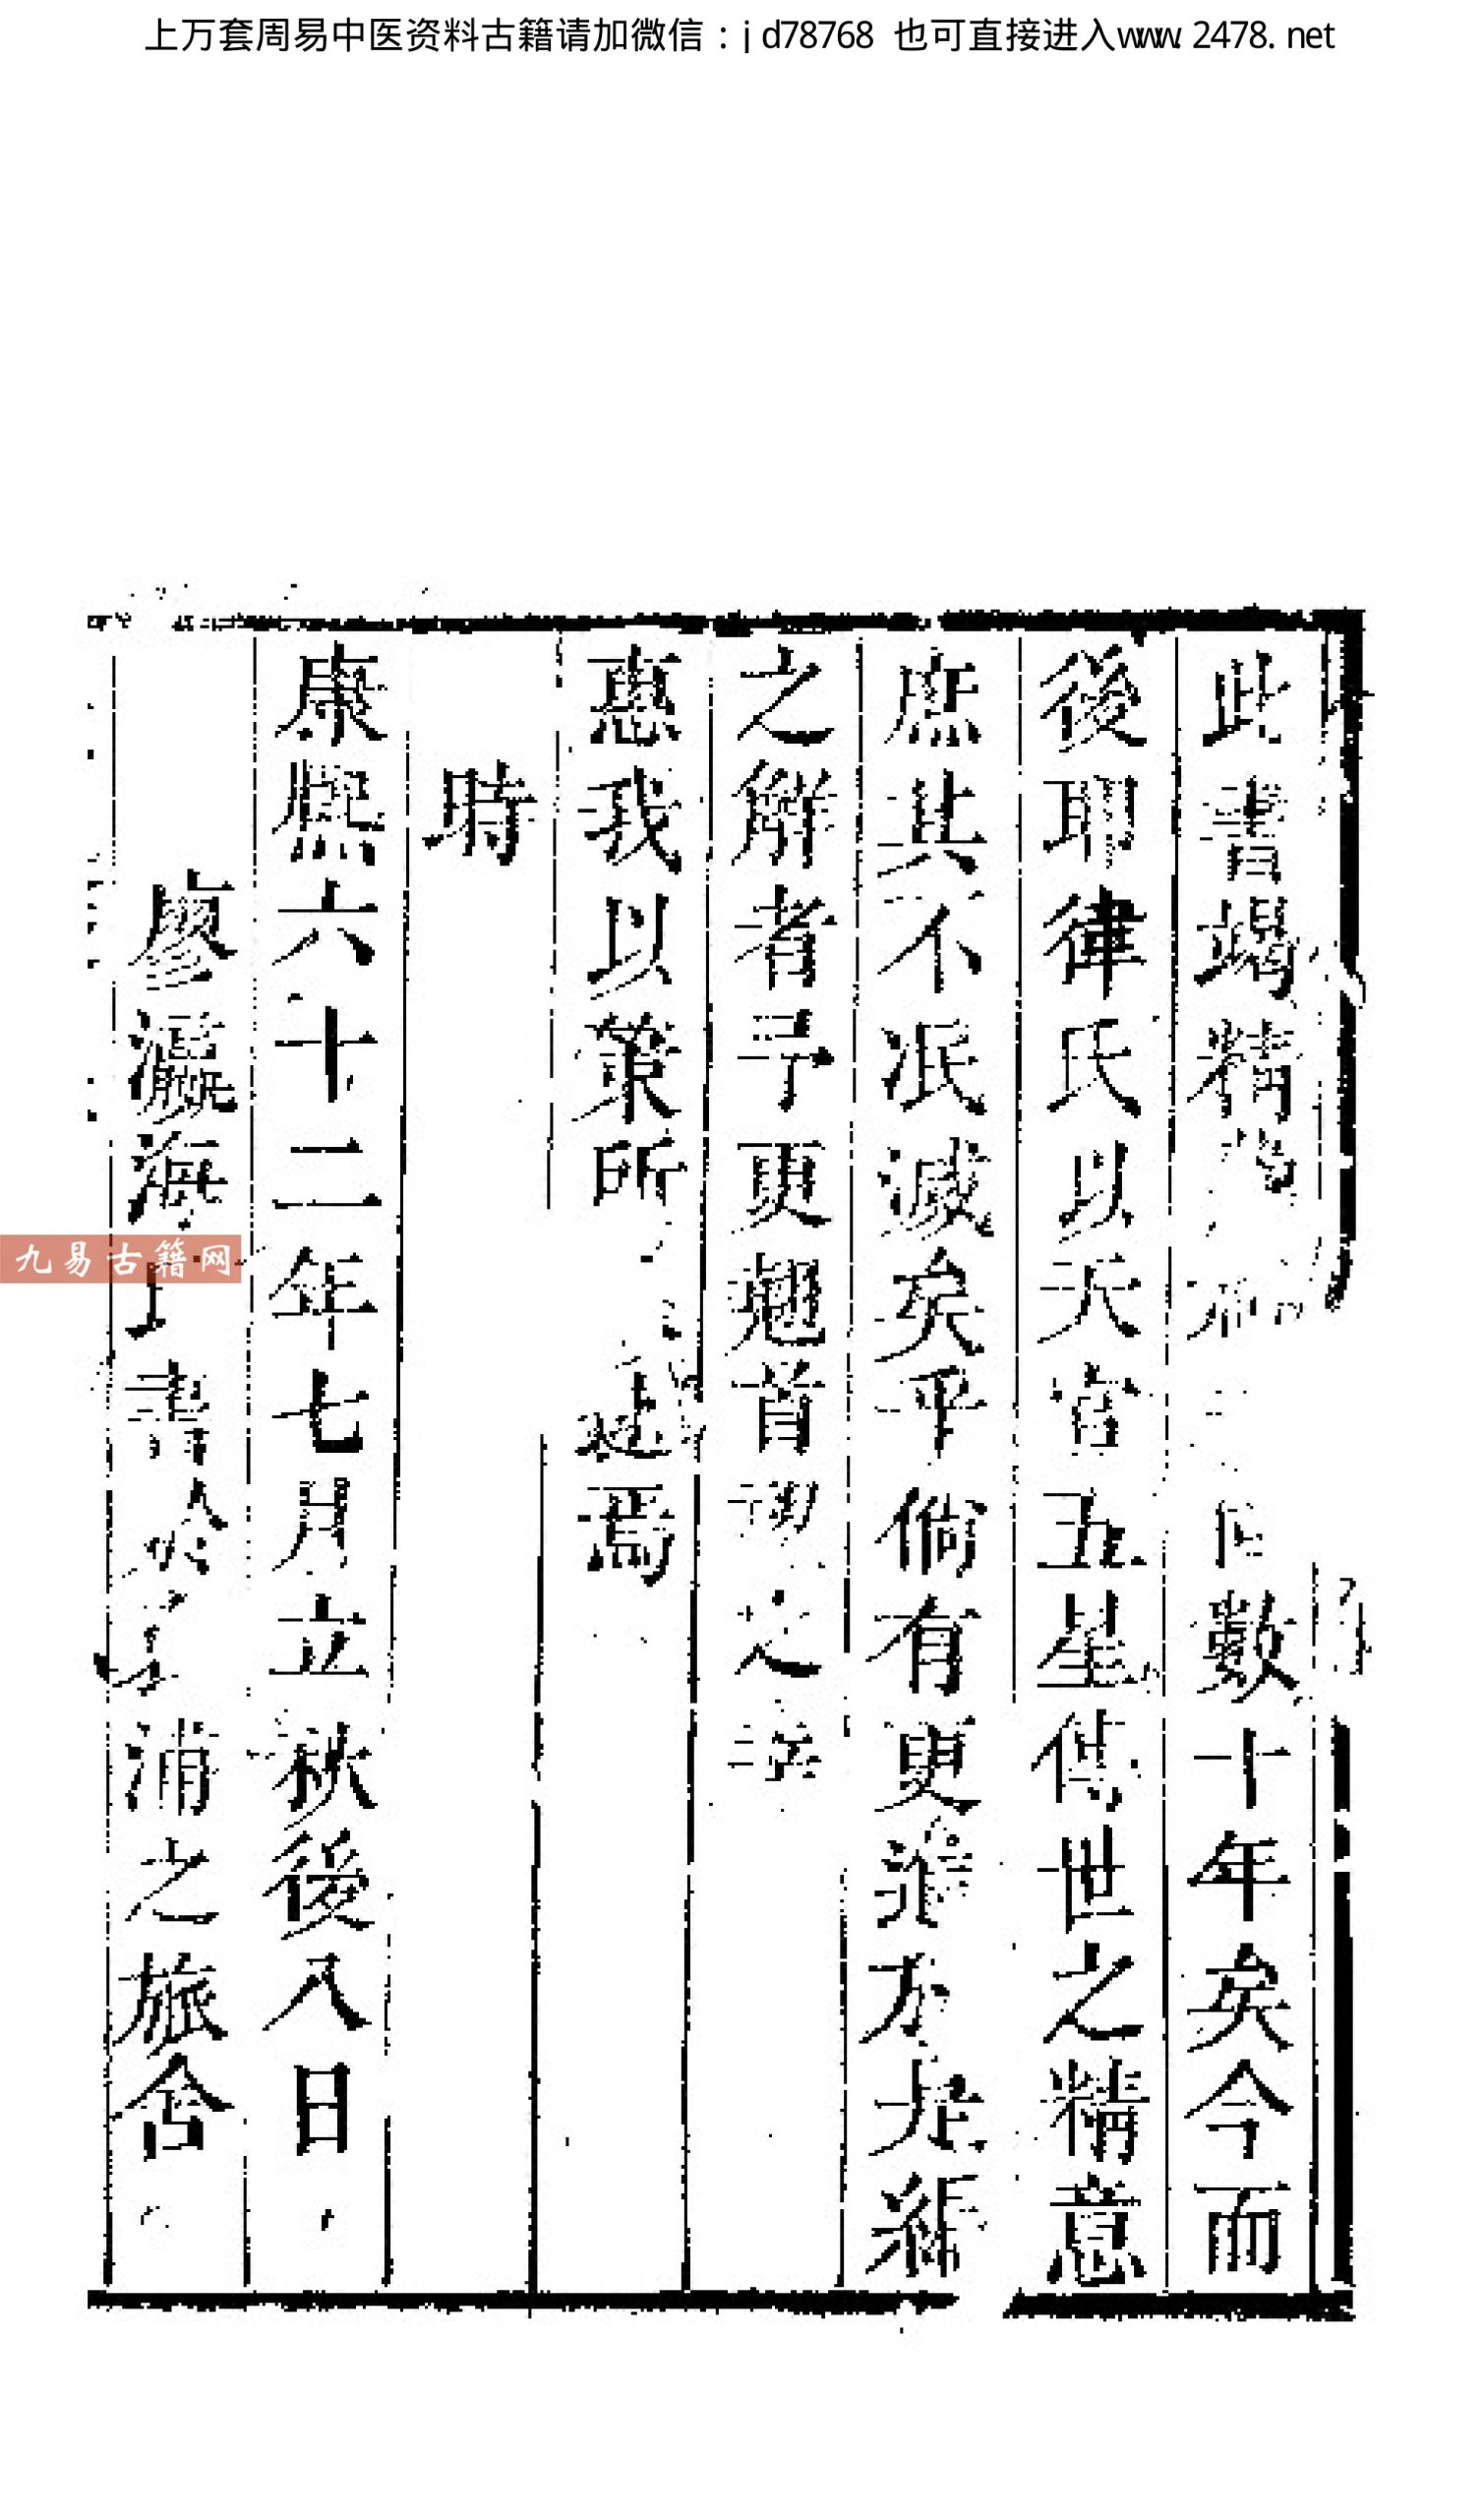 上万套周易中医资料古籍请加微信：jd78768 也可直接进入www.2478.net
此書竭精 數十年矣今而
後耶律氏以天官五星傳世之精意
庶其不泯滅矣乎倘有更進 九經
之解者予更翹首 之
惠我以策所 逮焉
時
康熙六十二年七月立秋後八日
廖瀛海 書於 浦之旅舍
九易古籍网